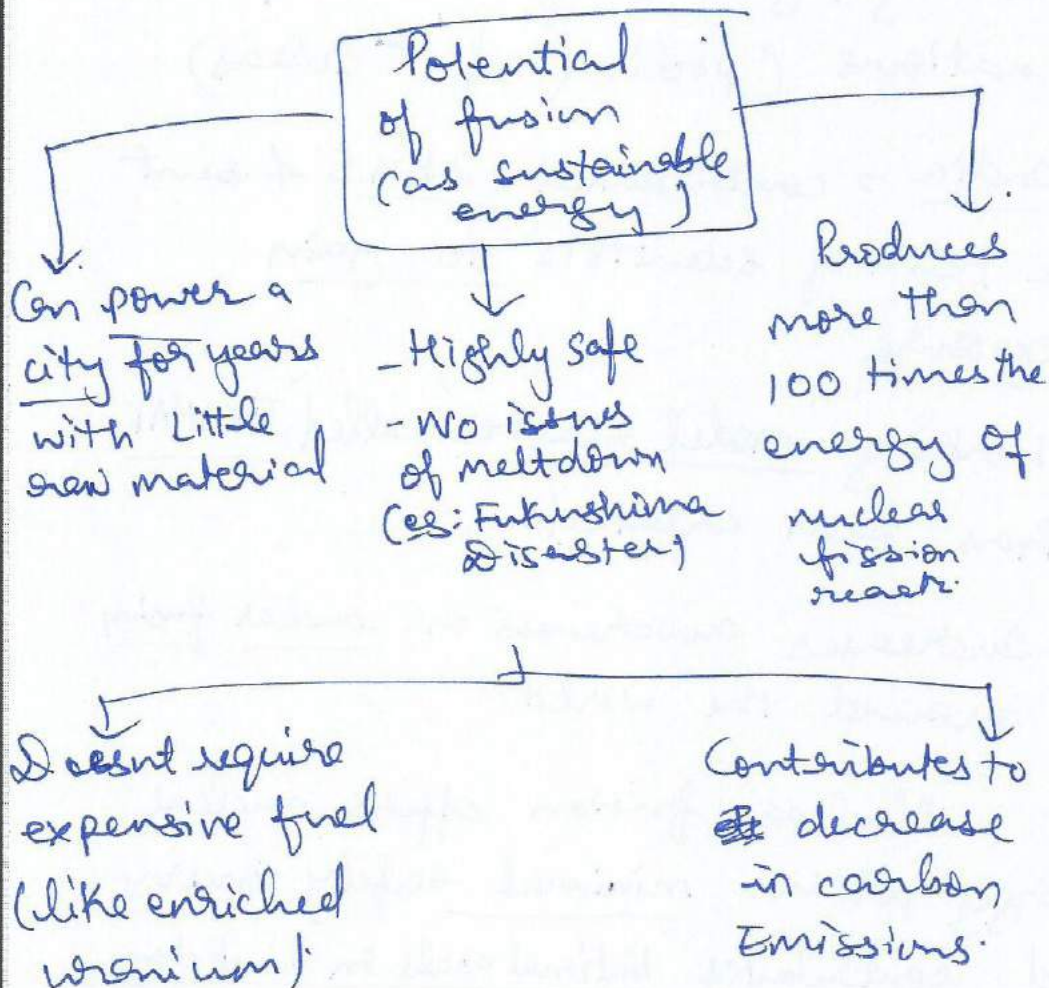 Potential
of fusion
(as sustainable
energy)
Can power a
city for years
with little
raw material
- Highly safe
No issues
of meltdown
(eg: Fukushima
Disaster)
Produces
more than
100 times the
energy of
nuclear
fission
react.
Doesnt require
expensive fuel
(like enriched
uranium)
Contributes to
decrease
in carbon
Emissions.